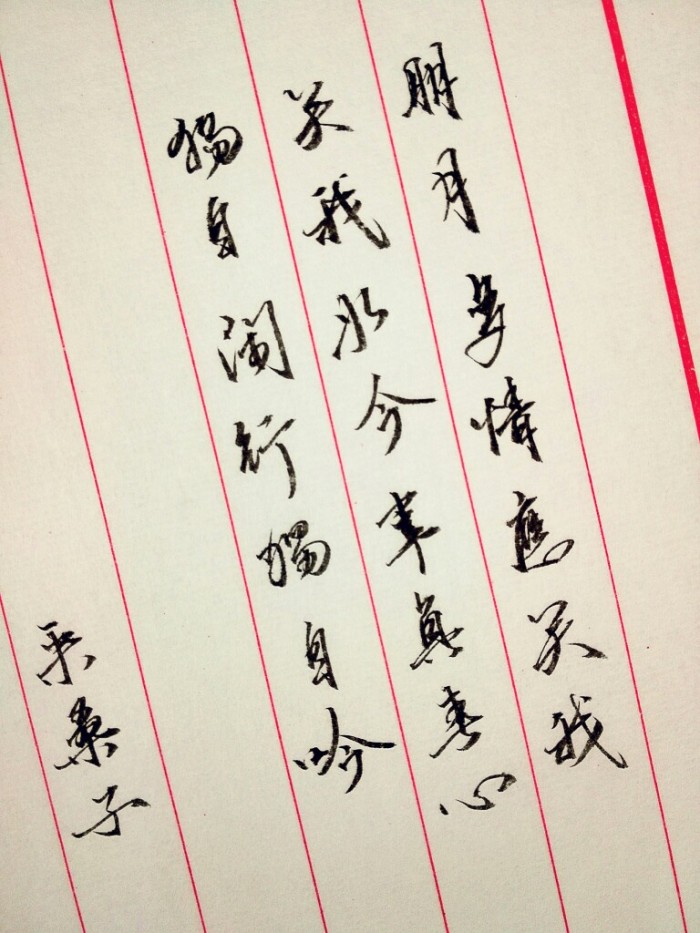 明月多情應笑我
笑我如今辜負春心
獨自閑行獨自吟
采桑子